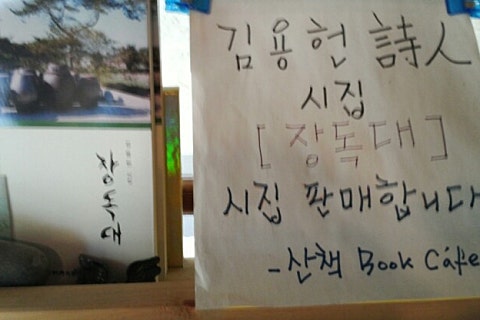 김용헌 詩人
시집
[장독대]
시집 판매합니다
- 산책 Book Cáfe
장독대